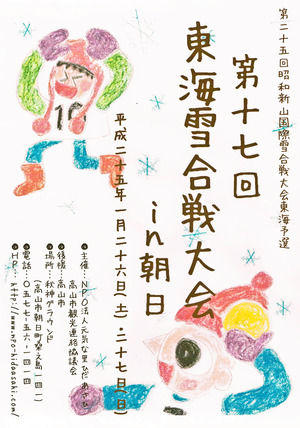 第二十五回昭和新山国際雪合戦大会東海予選
第十七回
東海雪合戦大会
in朝日
平成二十五年一月二十六日(土)・二十七日(日)
主催:NPO法人元気な里ひだあさひ
後援:高山市
高山市観光連絡協議会
場所:秋神グラウンド
(高山市朝日町
電話:〇五七七-五六-一四一一
HP:
10